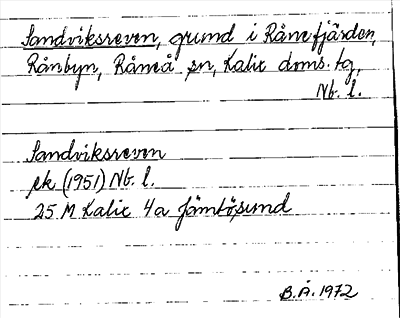 Sandviksreven, grund i Rånefjärden,
Rånbyn, Råneå sn, Kalix doms. tg,
Nb. l.
Sandviksreven
ek (1951) Nb. l.
25 M Kalix 4a Jämtösund
B.Å. 1972